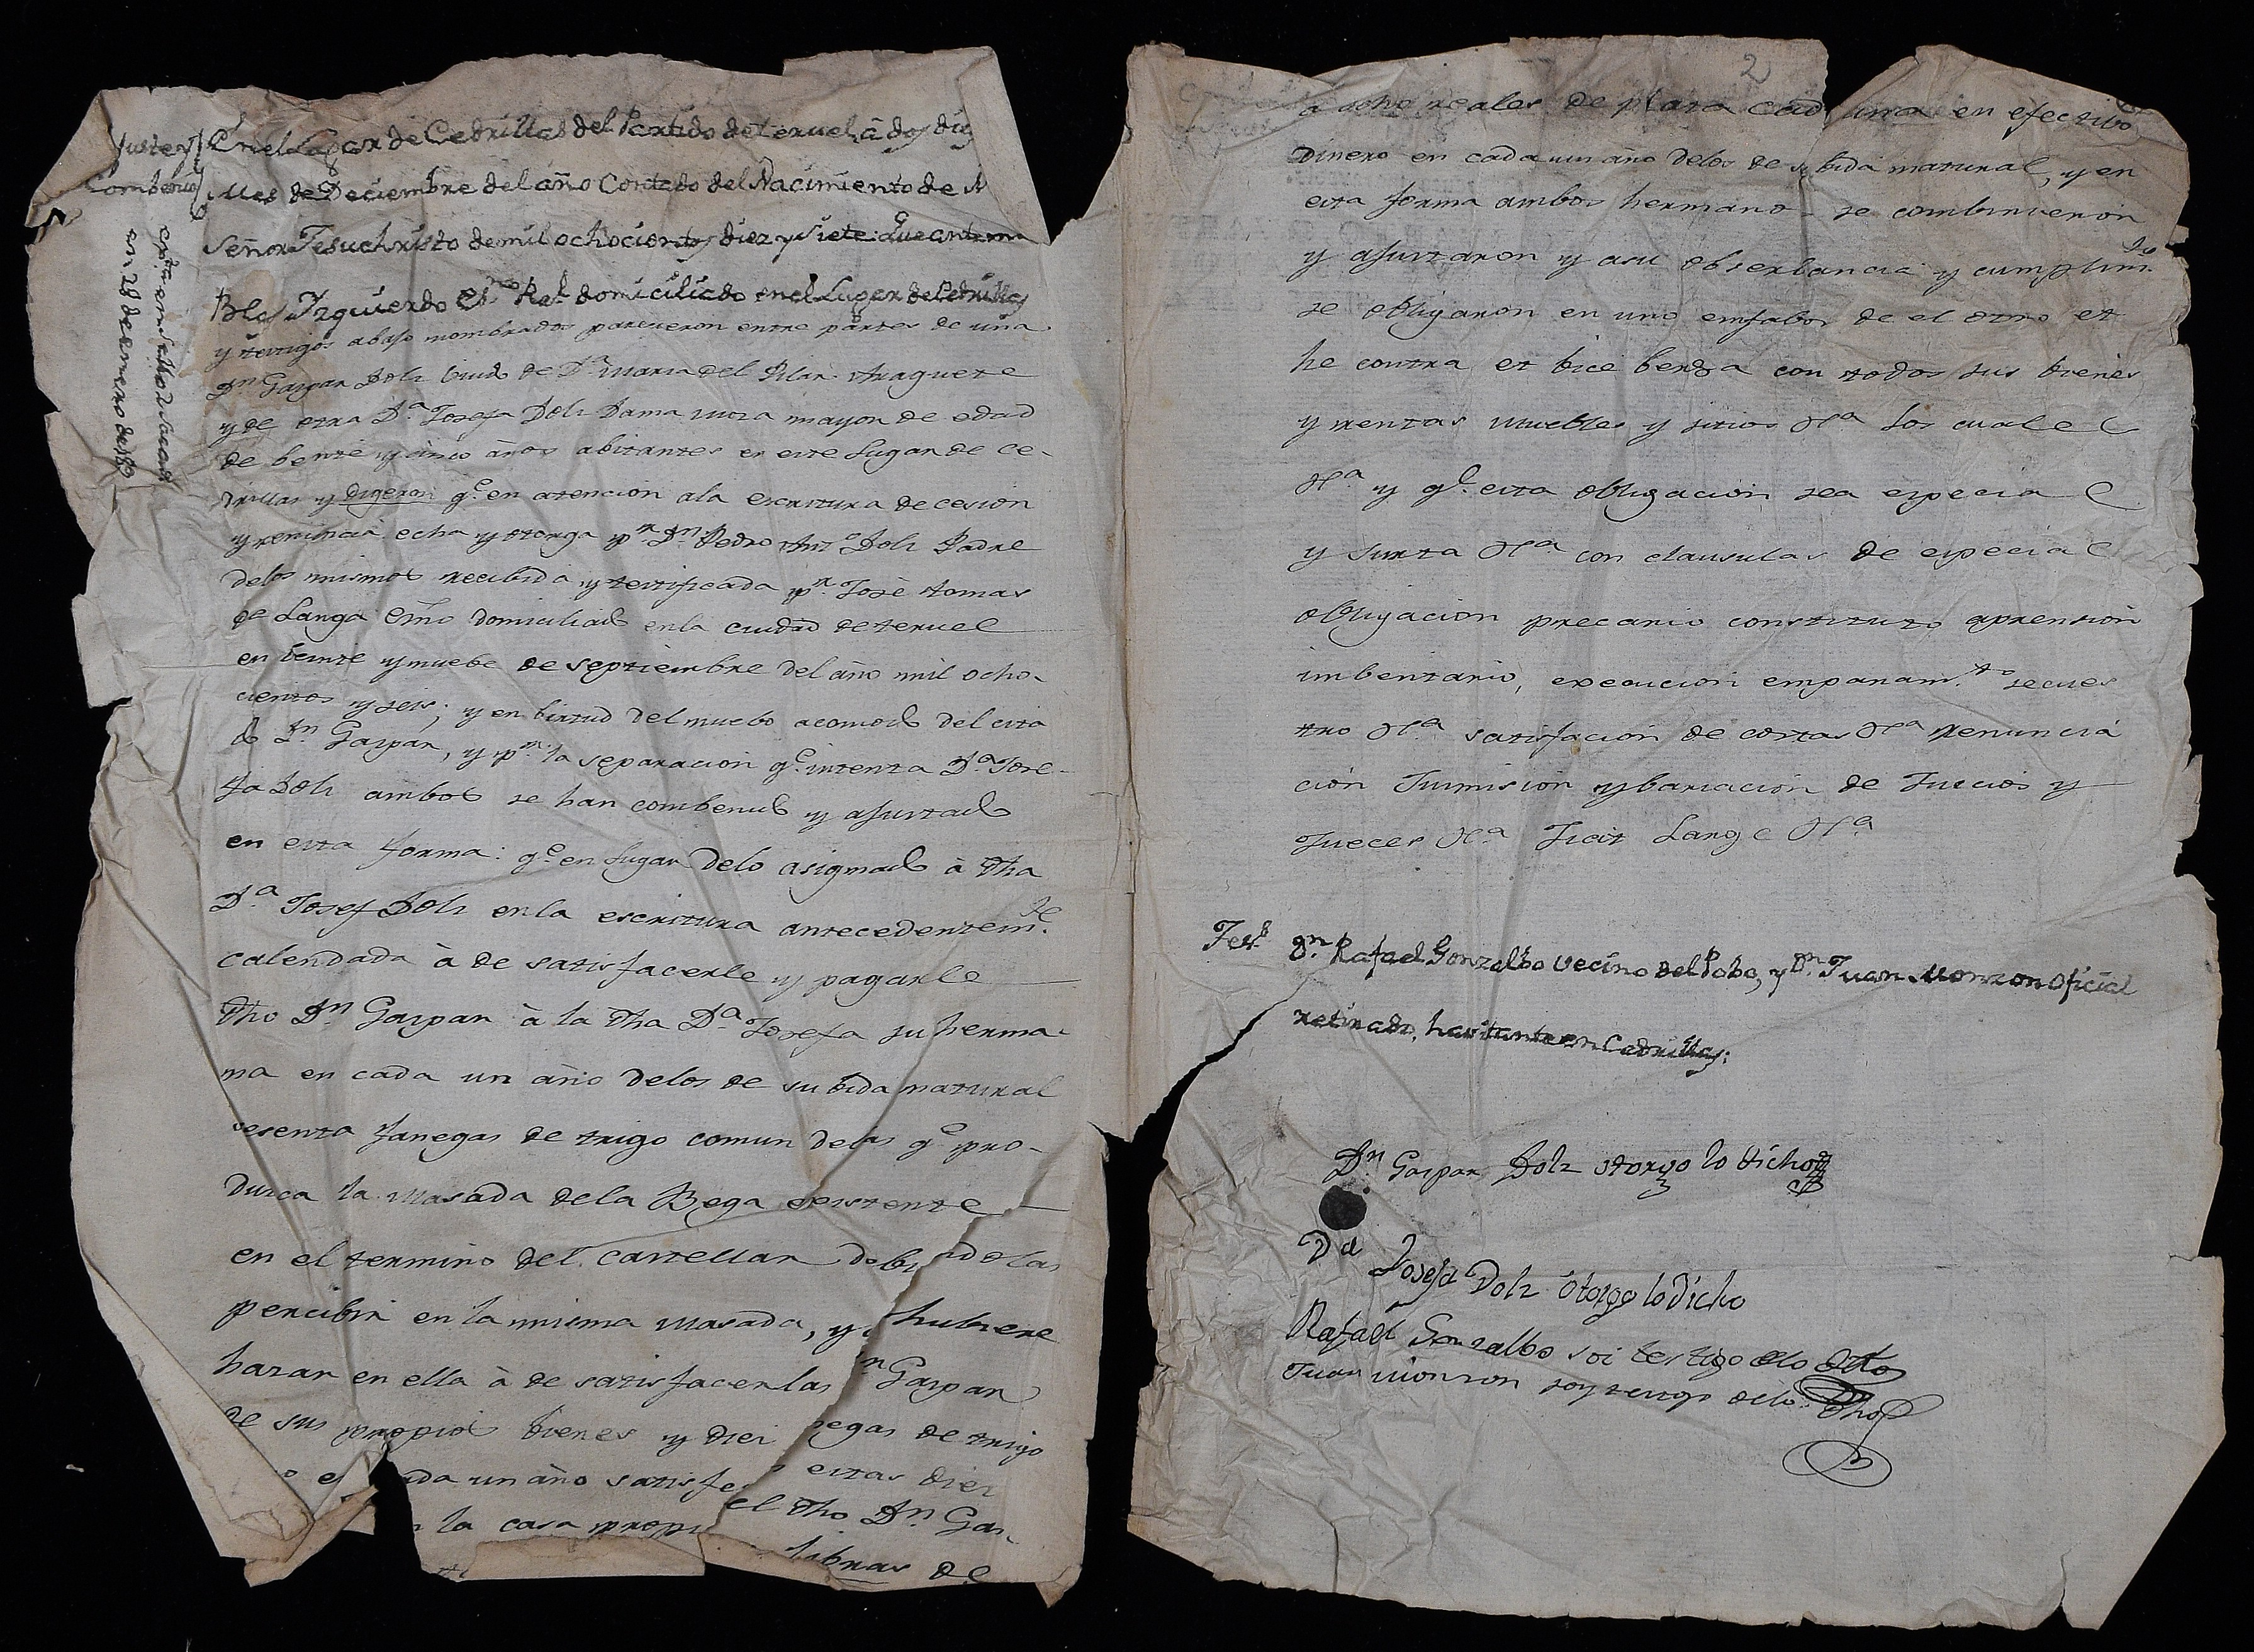 Juste y
Combenio
En el Lugar de Cedrillas del Partido de Teruel, à dos dias
Mes de Deciembre del año Contado del Nacimiento de N
Señor Jesuchristo de mil ochocientos diez y siete: Que ante mi
Blas Izquierdo Esno. Rel. domiciliado en el Lugar de Cedrillas
y testigos abajo nombrados parecieron entre partes de una
Dn. Gaspar Dolz biudo de Da. Maria del Pilar Araguete
y de otra Da. Josefa Dolz Dama moza mayor de edad
de bente y cinco años abitantes en este Lugar de Ce-
drillas y digeron qe. en atencion ala escritura de cesion
y renuncia echa y otorga pr. Dn. Pedro Anto. Dolz Padre
delos mismos recibida y testificada pr. José tomas
de Langa Esno. domiciliado en la ciudad de teruel
en beinte y nuebe de septiembre del año mil ocho-
cientos y seis; y en birtud del nuebo acomodo del cita
do Dn. Gaspar, y pr. la separacion qe. intenta Da. Jose-
fa Dolz ambos se han combenido y ajustado
en esta forma: qe. en lugar delo asignado à dha
Da. Josef Dolz en la escritura antecedentemte.
calendada à de satisfacerle y pagarle
dho Dn. Gaspar à la dha Da. Josefa su herma-
na en cada un año delos de su bida natural
sesenta fanegas de trigo comun delas qe. pro-
duzca la Masada dela Bega existente
en el termino del castellar
percibir en la misma Masada, y hubiere
hazar en ella à de satisfacerlas Dn. Gaspar
de sus propios bienes y diez egas de trigo
cada un año satisfe estas diez
la casa propi el dho Dn. Gas-
libras de
en 28 de enero de
2
a ocho reales de plata cada una en efectibo
dinero en cada un año delos de su bida natural, y en
esta forma ambos hermanos se combinieron
y ajustaron y asu obserbancia y cumplimto.
se obligaron en uno enfabor de el otro et
he contra et bice bersa con todos sus bienes
y rentas muebles y sitios &a. los cuales
&a. y qe. esta obligacion sea especial
y surta &a. con clausulas de especial
obligacion precario constituto aprension
imbentario, execucion emparamto. secues
tro &a. satisfacion de costas &a. renuncia
cion Sumision y bariacion de Juecios y
Jueces &a. Ficit Large &a.
Tests. Dn. Rafael Gonzalbo vecino del Pobo, y Dn. Juan Monzon oficial
retirado, havitante en Cedrillas:
Dn. Gaspar Dolz otorgo lo dicho
Da Josefa Dolz otorgo lo dicho
Rafael Gonzalbo soi testigo de lo dho
Juan Monzon soy testigo delo dho